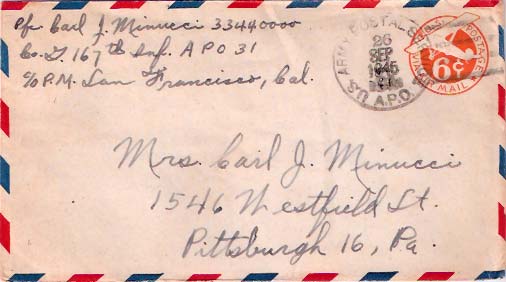 Pfc Carl J. Minucci 33440000
Co. I. 167th Inf. APO 31
c/o P.M. San Francisco, Cal.
ARMY POSTAL S
26
SEP
1945
U.S. A.P.O.
POSTAGE
6¢
VIA AIR MAIL
Mrs. Carl J. Minucci
1546 Westfield St.
Pittsburgh 16, Pa.